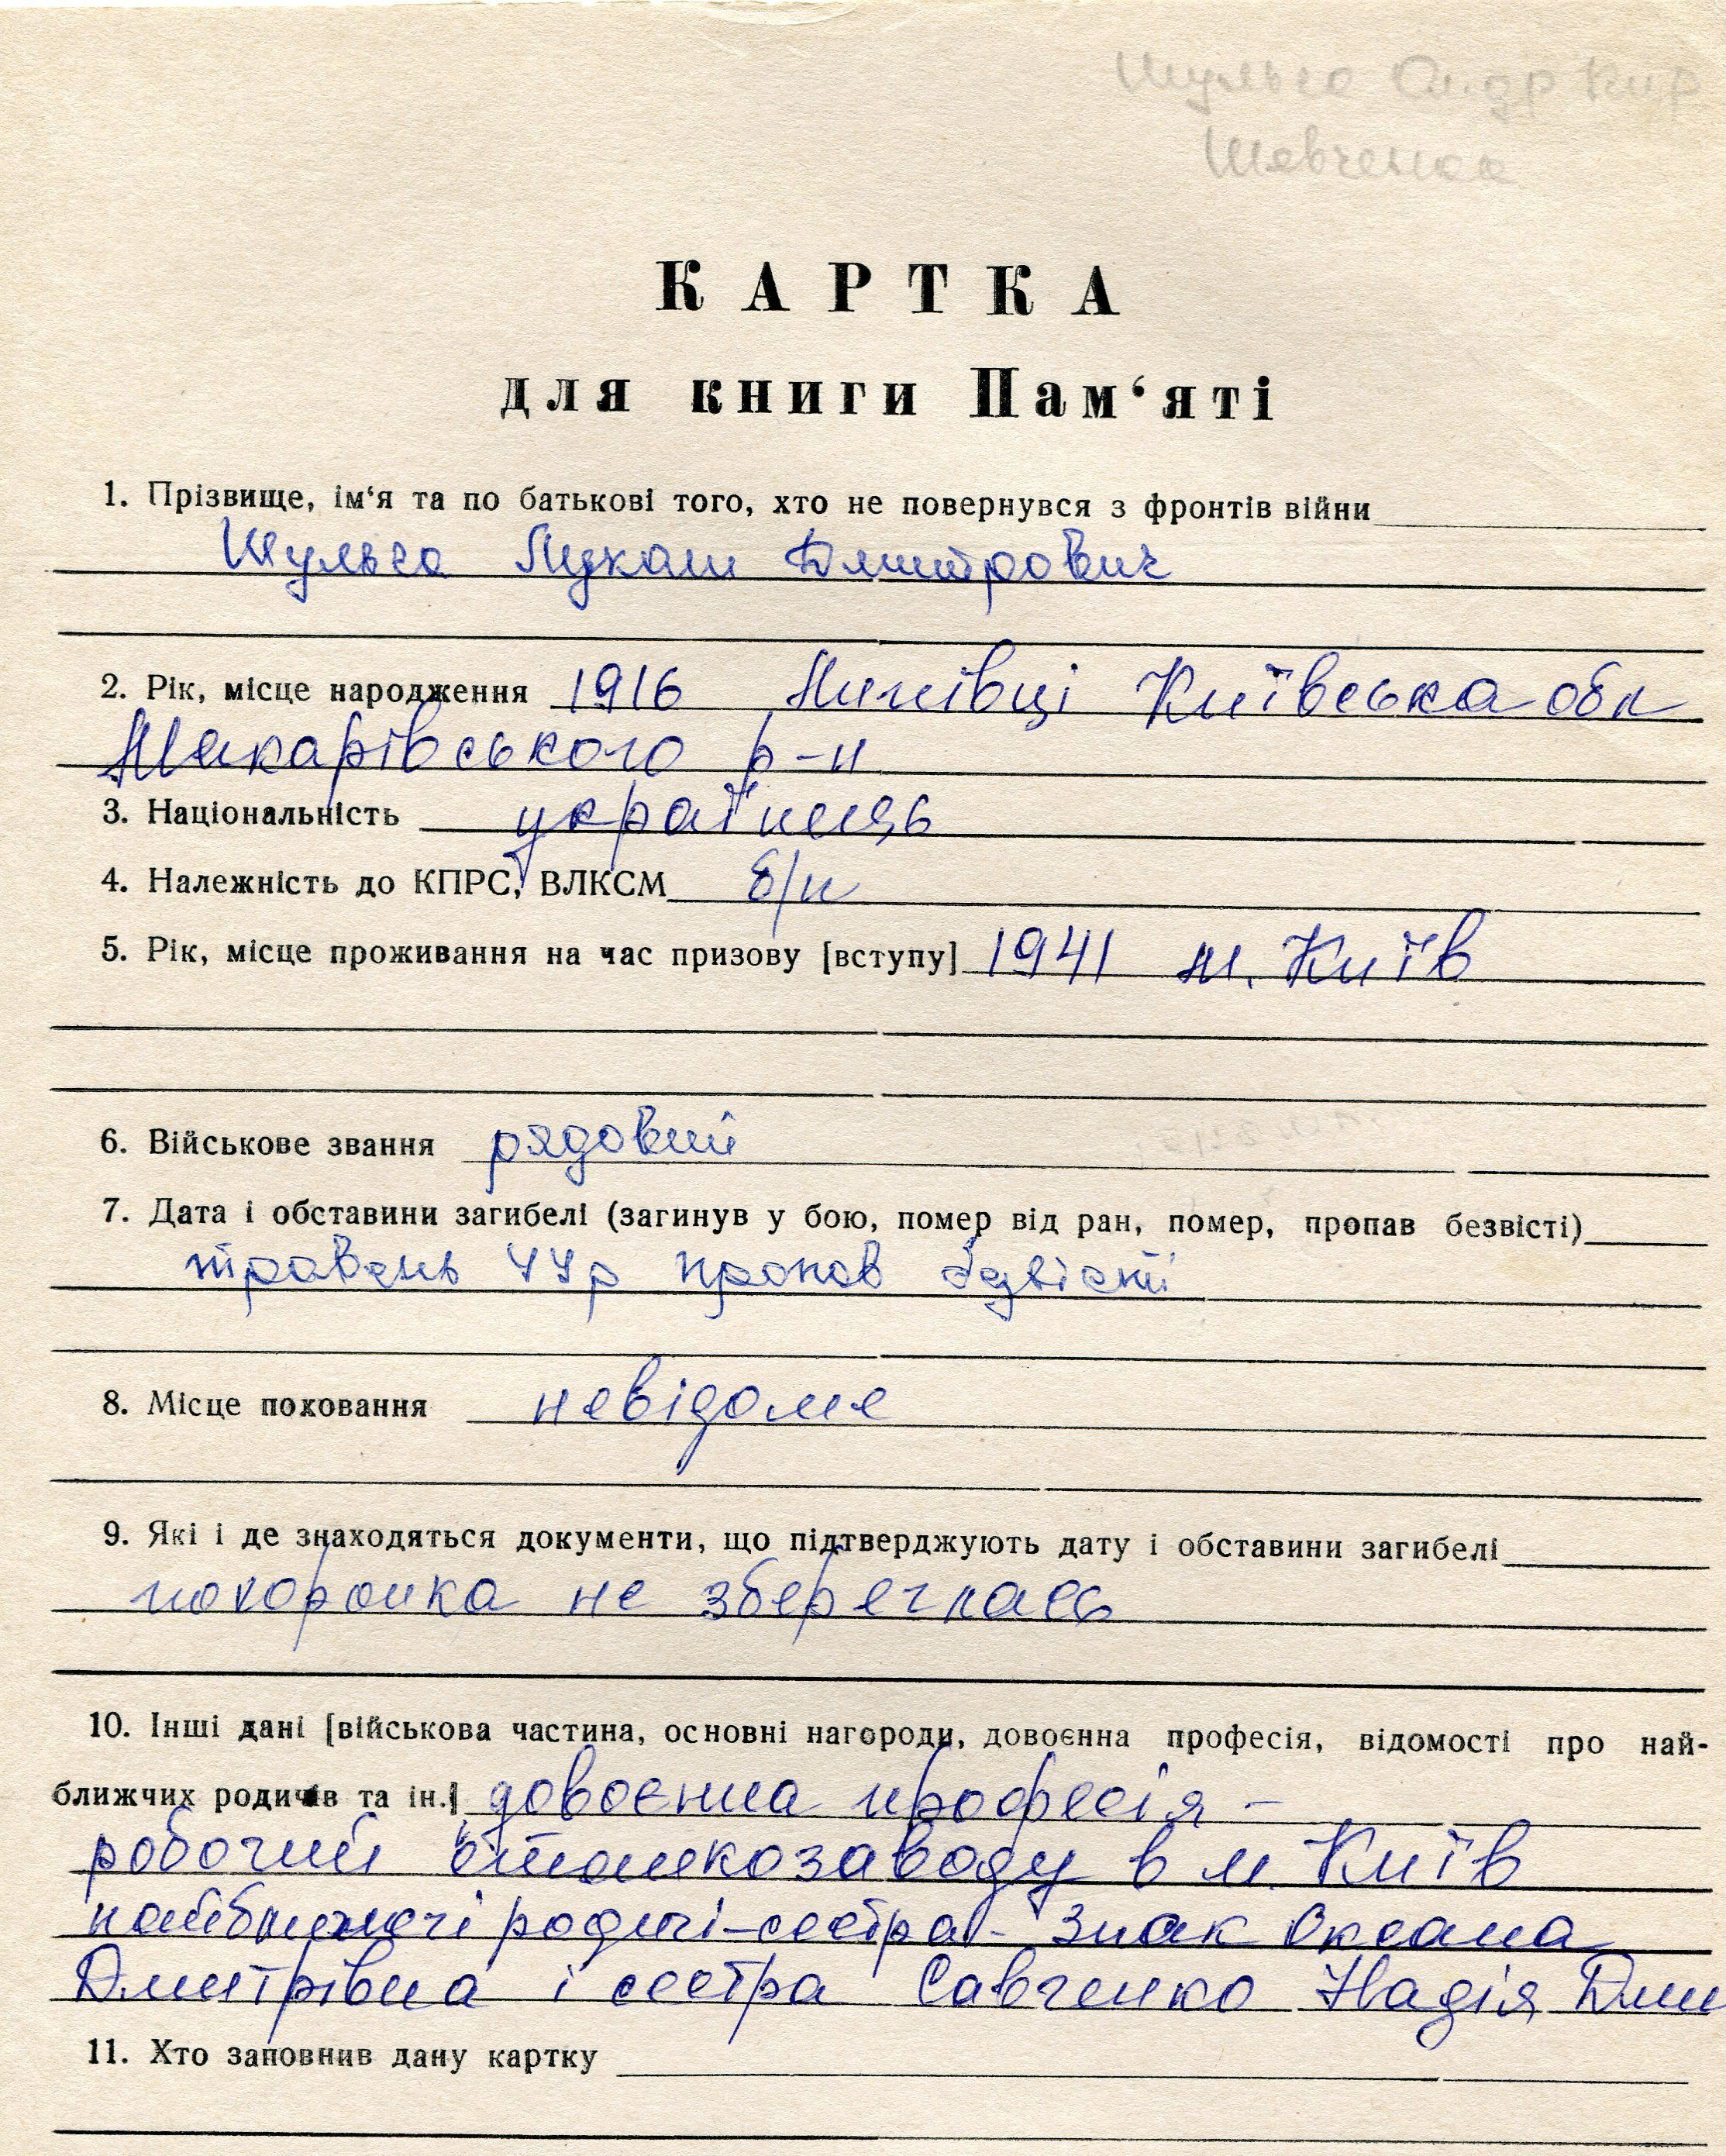 Шульга
Шевченка
КАРТКА
для книги Пам‘яті
1. Прізвище, ім‘я та по батькові того, хто не повернувся з фронтів війни
Шульга Лукаш Дмитрович
2. Рік, місце народження 1916 Київська обл
Макарівського р-н
3. Національність українець
4. Належність до КПРС, ВЛКСМ б/п
5. Рік, місце проживання на час призову [вступу] 1941 м. Київ
6. Військове звання рядовий
7. Дата і обставини загибелі (загинув у бою, помер від ран, помер, пропав безвісті)
травень 44р пропав безвісті
8. Місце поховання невідоме
9. Які і де знаходяться документи, що підтверджують дату і обставини загибелі
похоронка не збереглась
10. Інші дані [військова частина, основні нагороди, довоєнна професія, відомості про най-
ближчих родичів та ін.] довоєнна професія –
робочий в м. Київ
найближчі родичі – сестра – Знак Оксана
Дмитрівна і сестра Савченко Надія Дми
11. Хто заповнив дану картку